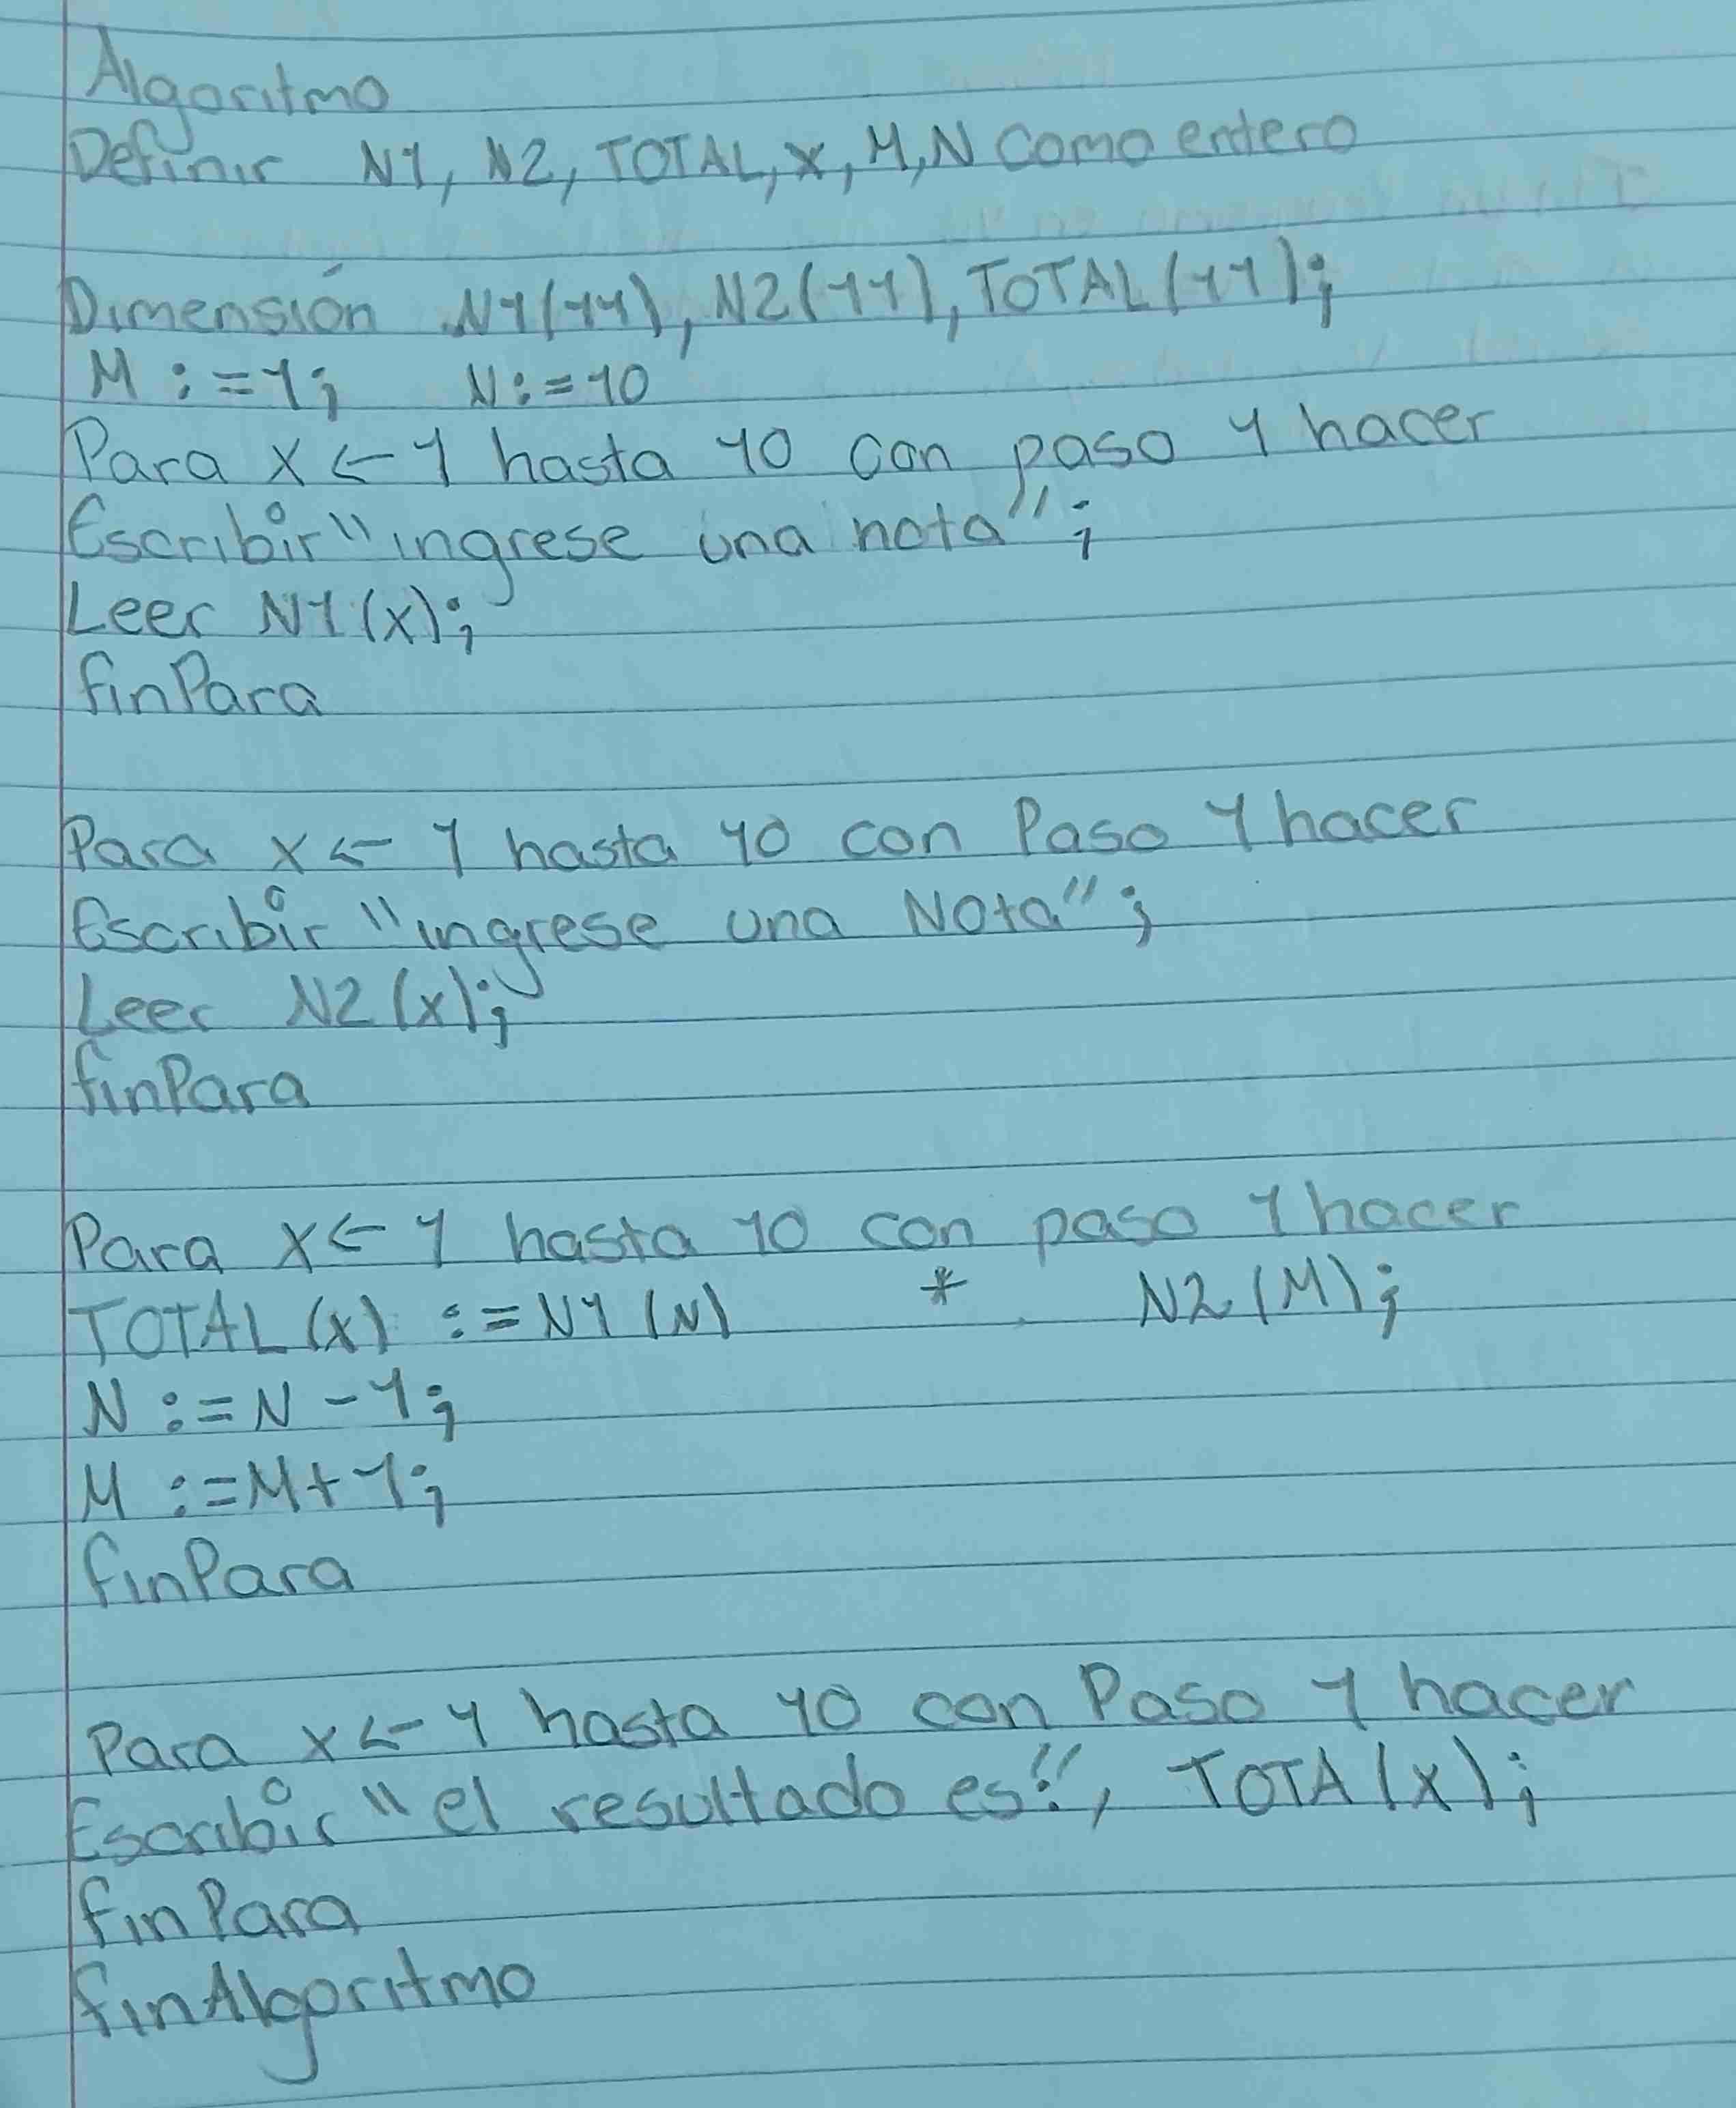 Algoritmo
Definir N1, N2, TOTAL, X, M, N Como entero
Dimensión N1(11), N2(11), TOTAL(11);
M := 1; N := 10
Para X <- 1 hasta 10 con paso 1 hacer
Escribir "ingrese una nota";
Leer N1(X);
finPara
Para X <- 1 hasta 10 con Paso 1 hacer
Escribir "ingrese una Nota";
Leer N2(X);
finPara
Para X <- 1 hasta 10 con paso 1 hacer
TOTAL(X) := N1(N) * N2(M);
N := N - 1;
M := M + 1;
finPara
Para X <- 1 hasta 10 con Paso 1 hacer
Escribir "el resultado es:", TOTA(X);
finPara
finAlgoritmo